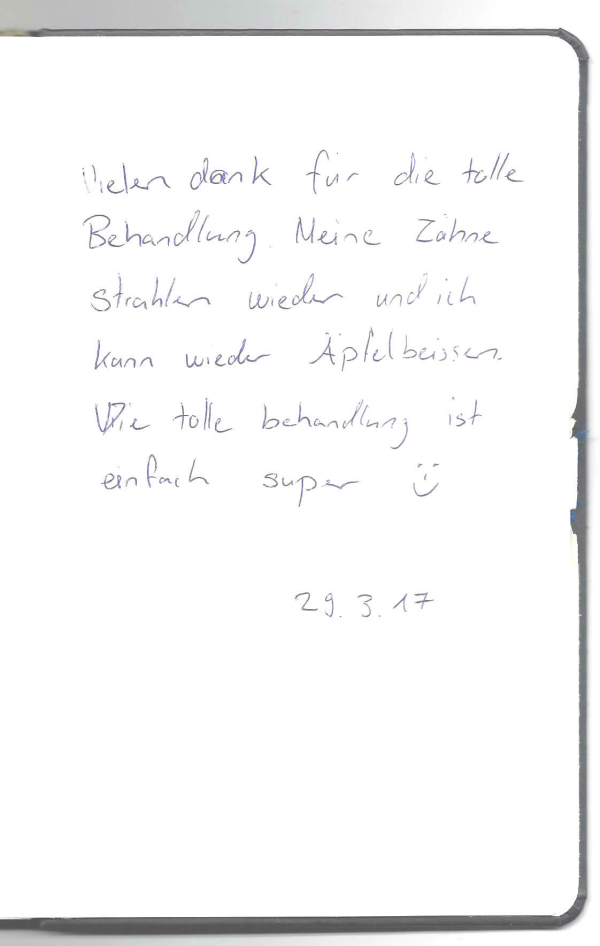 Vielen dank für die tolle
Behandlung. Meine Zähne
strahlen wieder und ich
kann wieder Äpfel beissen.
Die tolle behandlung ist
einfach super
29.3.17